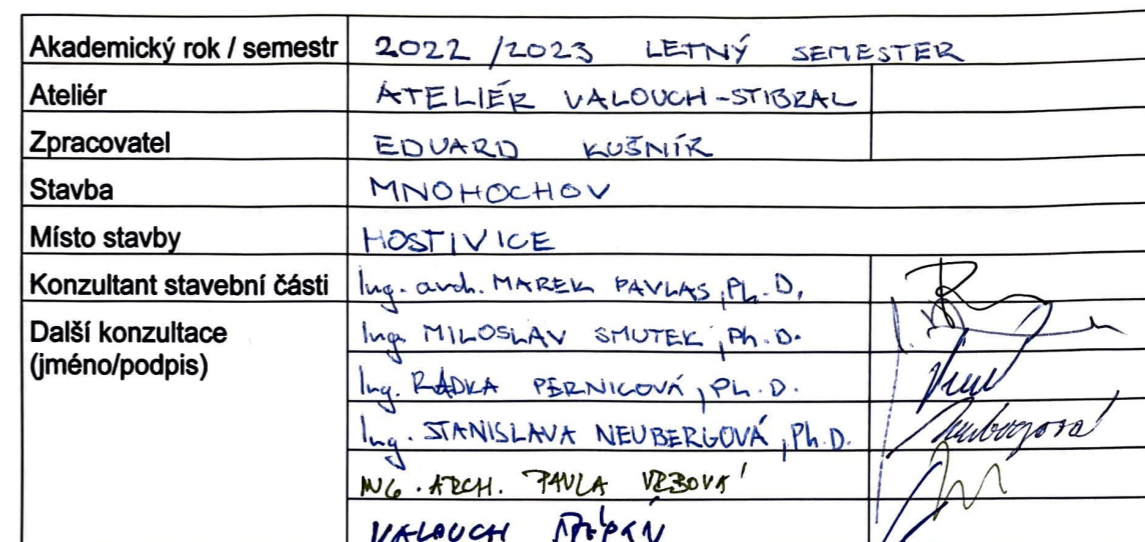 Akademický rok / semestr 2022/2023 LETNÝ SEMESTER
Ateliér ATELIÉR VALOUCH-STIBRAL
Zpracovatel EDUARD KUŠNÍR
Stavba MNOHOCHOV
Místo stavby HOSTIVICE
Konzultant stavební části Ing. arch. MAREK PAVLAS, Ph.D.
Další konzultace Ing. MILOSLAV SMUTEK, Ph.D.
(jméno/podpis) Ing. RADKA PERNICOVÁ, Ph.D.
Ing. STANISLAVA NEUBERGOVÁ, Ph.D. Neubergová
ING. ARCH. PAVLA VRBOVÁ
VALOUCH ŠTĚPÁN